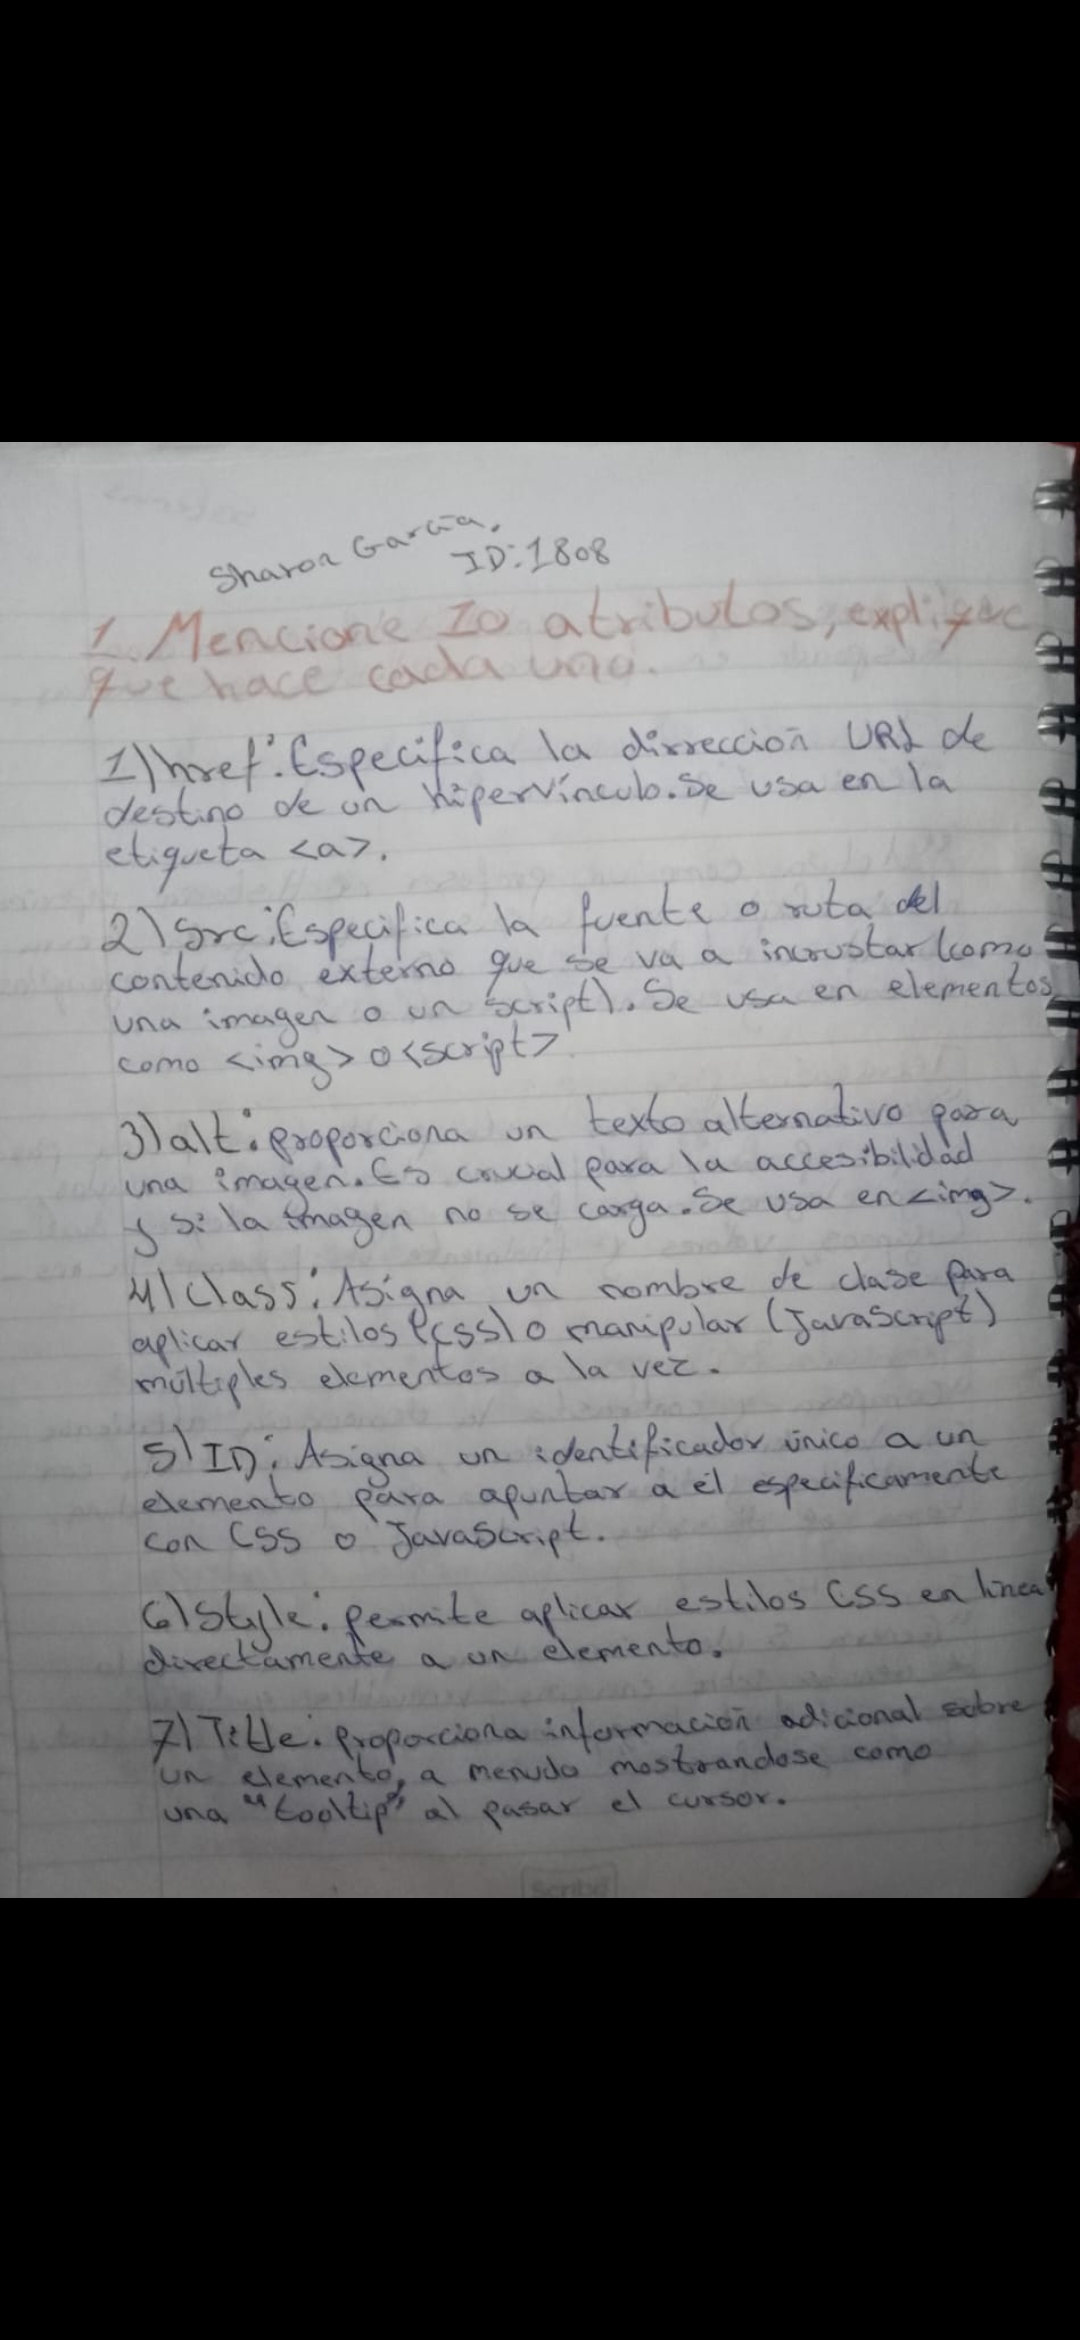 Sharon García.
ID:1808
1. Mencione 10 atributos, explique
que hace cada uno.
1) href: Especifica la dirrección URL de
destino de un hipervínculo. Se usa en la
etiqueta <a>.
2) Src: Especifica la fuente o ruta del
contenido externo que se va a incrustar (como
una imagen o un script). Se usa en elementos
como <img> o <script>
3) alt: proporciona un texto alternativo para
una imagen. Es crucial para la accesibilidad
y si la imagen no se carga. Se usa en <img>.
4) Class: Asigna un nombre de clase para
aplicar estilos (CSS) o manipular (JavaScript)
múltiples elementos a la vez.
5) ID: Asigna un identificador único a un
elemento para apuntar a él especificamente
con CSS o JavaScript.
6) Style: permite aplicar estilos CSS en línea
directamente a un elemento.
7) Title: proporciona información adicional sobre
un elemento, a menudo mostrandose como
una "tooltip" al pasar el cursor.
Scribe